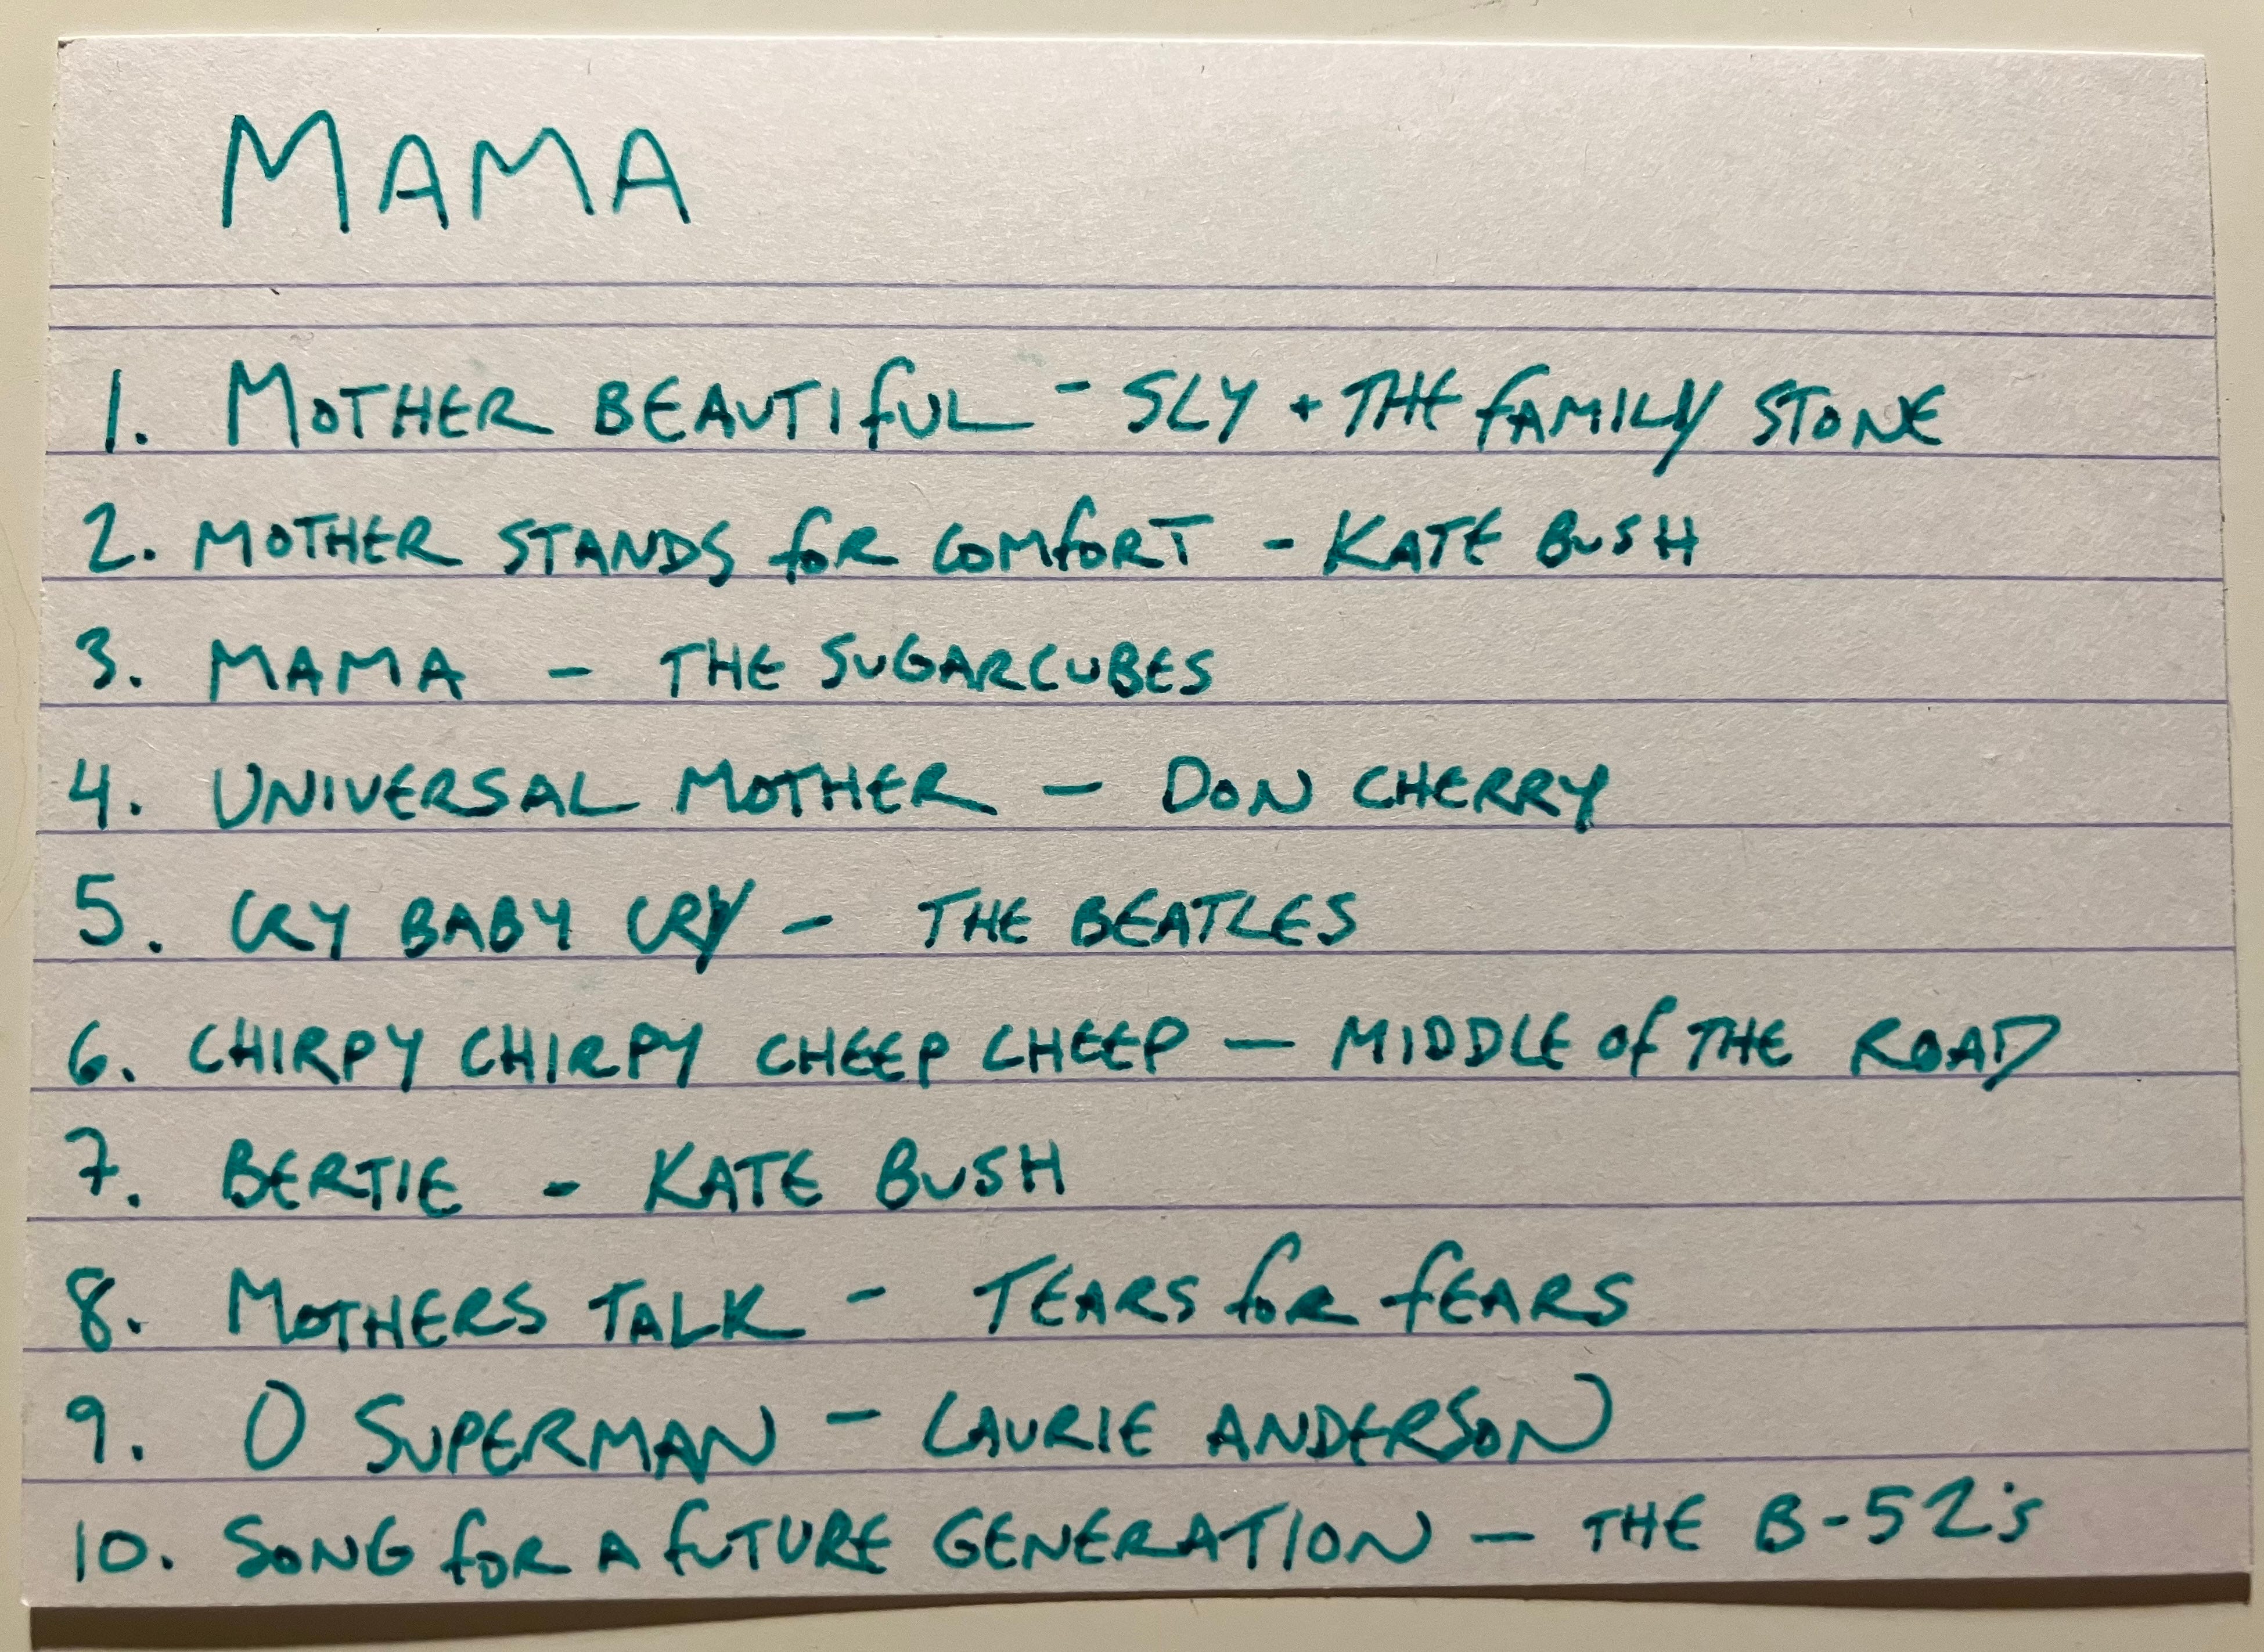 MAMA
1. MOTHER BEAUTIFUL - SLY + THE FAMILY STONE
2. MOTHER STANDS FOR COMFORT - KATE BUSH
3. MAMA - THE SUGARCUBES
4. UNIVERSAL MOTHER - DON CHERRY
5. CRY BABY CRY - THE BEATLES
6. CHIRPY CHIRPY CHEEP CHEEP - MIDDLE OF THE ROAD
7. BERTIE - KATE BUSH
8. MOTHERS TALK - TEARS FOR FEARS
9. O SUPERMAN - LAURIE ANDERSON
10. SONG FOR A FUTURE GENERATION - THE B-52's